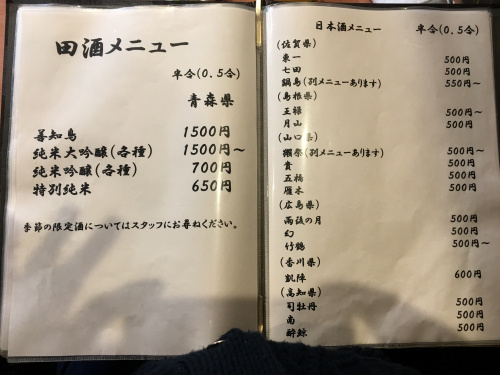 田酒メニュー
半合(0.5合)
青森県
善知鳥 1500円
純米大吟醸(各種) 1500円～
純米吟醸(各種) 700円
特別純米 650円
季節の限定酒についてはスタッフにお尋ねください。
日本酒メニュー 半合(0.5合)
(佐賀県)
東一 500円
七田 500円
鍋島(別メニューあります) 550円～
(島根県)
王禄 500円～
月山 500円
(山口県)
獺祭(別メニューあります) 500円～
貴 500円
五橋 500円
雁木 500円
(広島県)
雨後の月 500円
幻 500円
竹鶴 500円～
(香川県)
凱陣 600円
(高知県)
司牡丹 500円
南 500円
酔鯨 500円